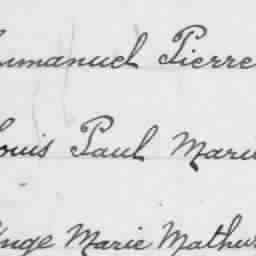 Emmanuel Pierre
Louis Paul Marie
Ange Marie Mathur